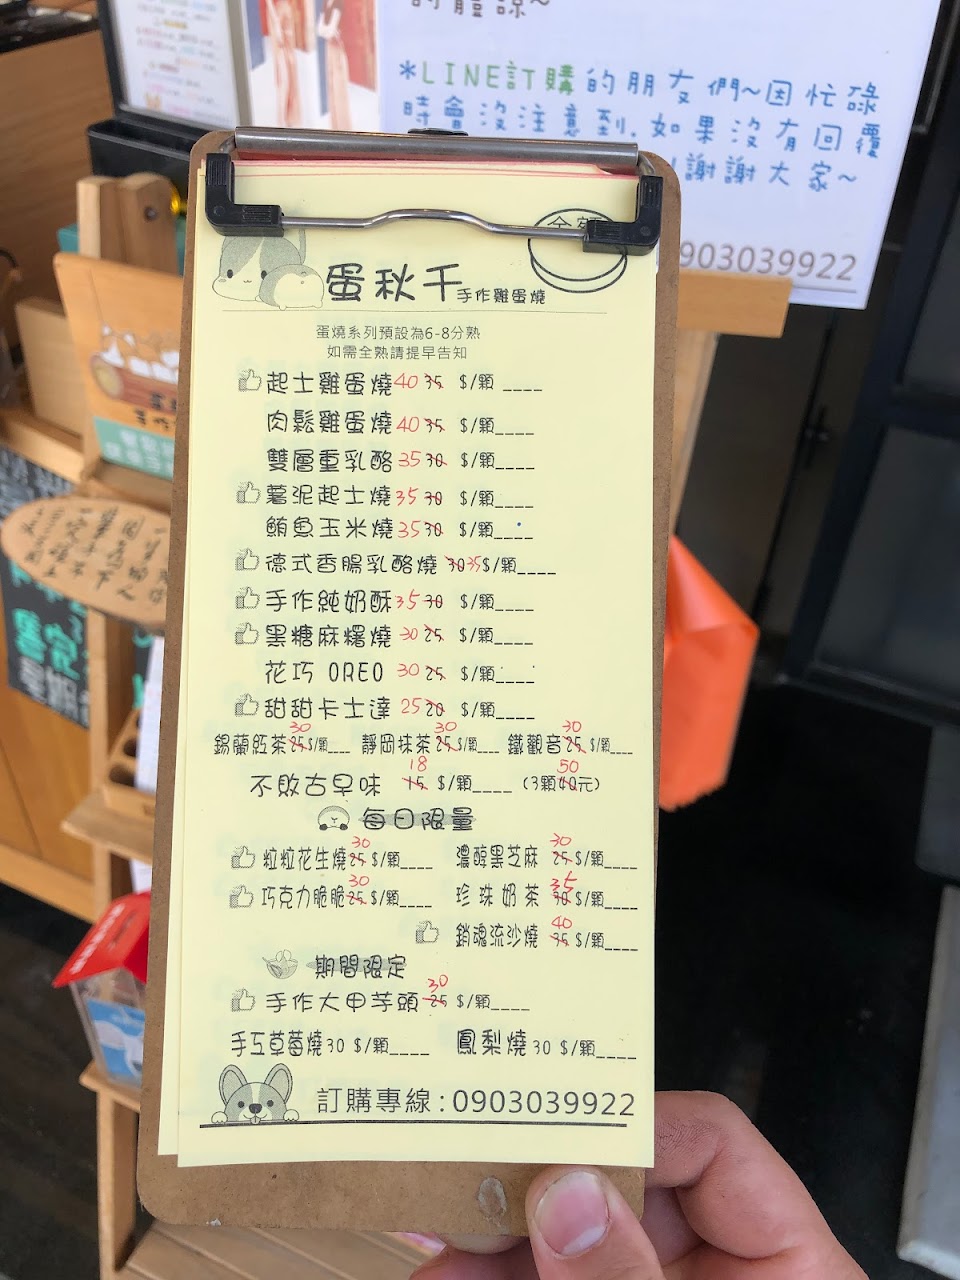 討體諒~
*LINE訂購的朋友們~因忙碌
時會沒注意到.如果沒有回覆
謝謝大家~
0903039922
金額
蛋秋千手作雞蛋燒
蛋燒系列預設為6-8分熟
如需全熟請提早告知
起士雞蛋燒 40 35 $/顆 ____
肉鬆雞蛋燒 40 35 $/顆____
雙層重乳酪 35 30 $/顆____
薯泥起士燒 35 30 $/顆____
鮪魚玉米燒 35 30 $/顆____
德式香腸乳酪燒 30 35 $/顆____
手作純奶酥 35 30 $/顆____
黑糖麻糬燒 30 25 $/顆____
花巧 OREO 30 25 $/顆____
甜甜卡士達 25 20 $/顆____
錫蘭紅茶 30 25 $/顆___ 靜岡抹茶 30 25 $/顆___ 鐵觀音 30 25 $/顆___
不敗古早味 18 15 $/顆____ (3顆 50 40元)
每日限量
粒粒花生燒 30 25 $/顆____ 濃醇黑芝麻 30 25 $/顆____
巧克力脆脆 30 25 $/顆____ 珍珠奶茶 35 30 $/顆____
銷魂流沙燒 40 35 $/顆____
期間限定
手作大甲芋頭 30 25 $/顆____
手工草莓燒 30 $/顆____ 鳳梨燒 30 $/顆____
訂購專線:0903039922